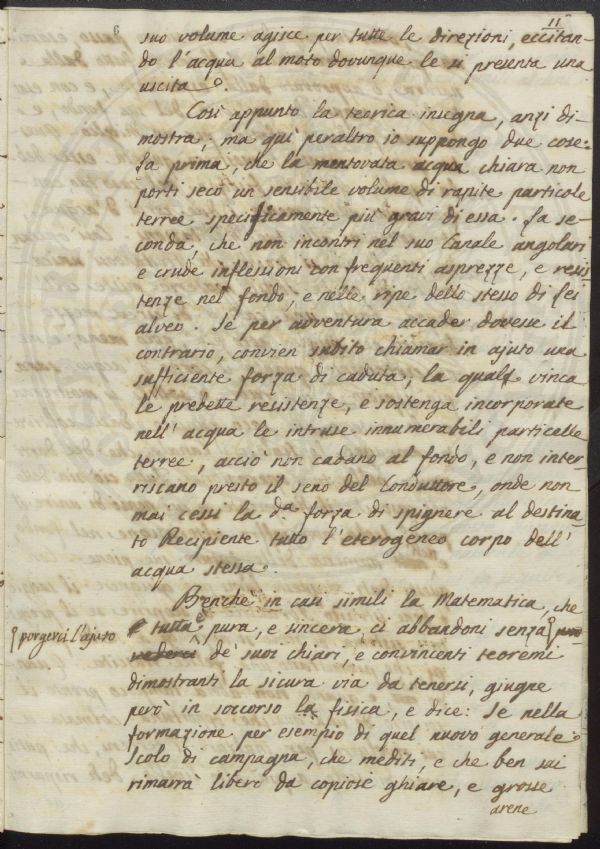 6
11
suo volume agisce per tutte le direzioni, eccitan-
do l'acqua al moto dovunque le si presenta una
uscita.
Così appunto la teorica insegna, anzi di-
mostra; ma quì peraltro io suppongo due cose:
La prima, che la mentovata acqua chiara non
porti seco un sensibile volume di rapite particole
terree specificamente più gravi di essa. La se-
conda, che non incontri nel suo Canale angolari
e crude inflessioni con frequenti asprezze, e resis
tenze nel fondo, e nelle ripe dello stesso di lei
alveo. Se per avventura accader dovesse il
contrario, convien subito chiamar in ajuto una
sufficiente forza di caduta, la quale vinca
le predette resistenze, e sostenga incorporate
nell'acqua le intruse innumerabili particelle
terree, acciò non cadano al fondo, e non inter-
riscano presto il seno del Conduttore, onde non
mai cessi la d.a forza di spignere al destina
to Recipiente tutto l'eterogeneo corpo dell'
acqua stessa.
Benchè in casi simili la Matematica, che
è tutta pura, e sincera, ci abbandoni senza
porgerci l'ajuto
de' suoi chiari, e convincenti teoremi
dimostranti la sicura via da tenersi, giugne
però in soccorso la fisica, e dice: Se nella
formazione per esempio di quel nuovo generale
Scolo di campagna, che mediti, e che ben sai
rimarrà libero da copiose ghiare, e grosse
arene